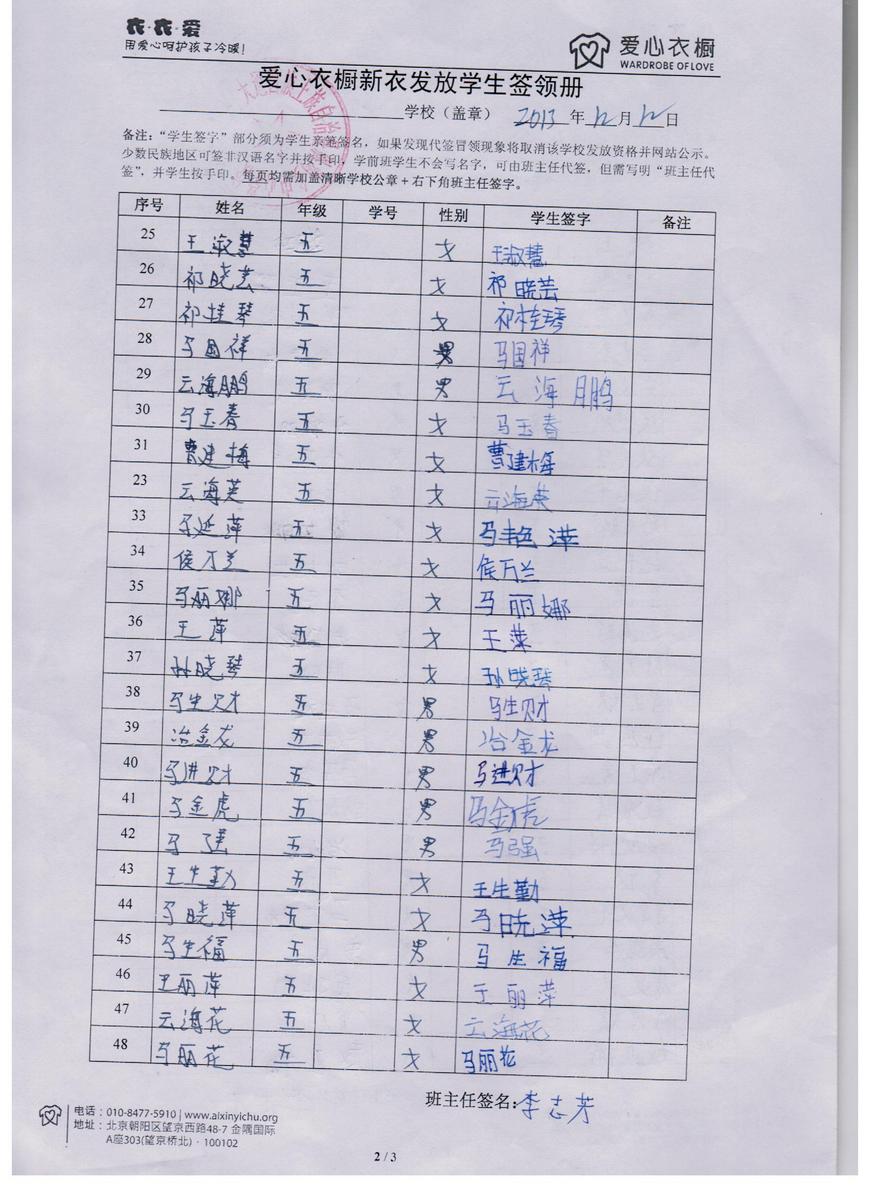 衣·衣·爱
用爱心呵护孩子冷暖!
爱心衣橱
WARDROBE OF LOVE
爱心衣橱新衣发放学生签领册
学校（盖章） 2013 年 12 月 12 日
备注：“学生签字”部分须为学生亲笔签名，如果发现代签冒领现象将取消该学校发放资格并网站公示。
少数民族地区可签非汉语名字并按手印。学前班学生不会写名字，可由班主任代签，但需写明“班主任代
签”，并学生按手印。每页均需加盖清晰学校公章+右下角班主任签字。
序号 姓名 年级 学号 性别 学生签字 备注
25 王淑慧 五 女 王淑慧
26 祁晓芸 五 女 祁晓芸
27 祁桂琴 五 女 祁桂琴
28 马国祥 五 男 马国祥
29 云海鹏 五 男 云海鹏
30 马玉春 五 女 马玉春
31 曹建梅 五 女 曹建梅
23 云海英 五 女 云海英
33 马延萍 五 女 马艳萍
34 侯万兰 五 女 侯万兰
35 马丽娜 五 女 马丽娜
36 王萍 五 女 王萍
37 孙晓琴 五 女 孙晓琴
38 马生财 五 男 马生财
39 冶金龙 五 男 冶金龙
40 马进财 五 男 马进财
41 马金虎 五 男 马金虎
42 马 五 男 马强
43 王生勤 五 女 王生勤
44 马晓萍 五 女 马晓萍
45 马生福 五 男 马生福
46 王丽萍 五 女 王丽萍
47 云海花 五 女 云海花
48 马丽花 五 女 马丽花
班主任签名:李志芳
电话：010-8477-5910 | www.aixinyichu.org
地址：北京朝阳区望京西路48-7 金隅国际
A座303(望京桥北)·100102
2 / 3